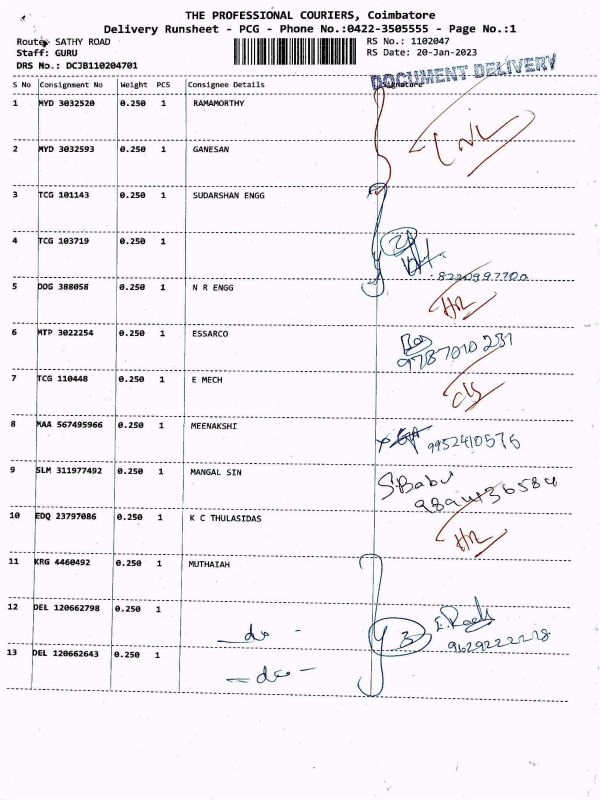 THE PROFESSIONAL COURIERS, Coimbatore
Delivery Runsheet - PCG - Phone No.:0422-3505555 - Page No.:1
Route: SATHY ROAD
RS No.: 1102047
Staff: GURU
RS Date: 20-Jan-2023
DRS No.: DCJB110204701
DOCUMENT DELIVERY
S No Consignment No Weight PCS Consignee Details Signature
1 MYD 3032520 0.250 1 RAMAMORTHY
2 MYD 3032593 0.250 1 GANESAN
3 TCG 101143 0.250 1 SUDARSHAN ENGG
4 TCG 103719 0.250 1
5 DDG 388058 0.250 1 N R ENGG
6 MTP 3022254 0.250 1 ESSARCO
9787010231
7 TCG 110448 0.250 1 E MECH
8 MAA 567495966 0.250 1 MEENAKSHI
9952410576
9 SLM 311977492 0.250 1 MANGAL SIN
S.Babu
10 EDQ 23797086 0.250 1 K C THULASIDAS
11 KRG 4460492 0.250 1 MUTHAIAH
12 DEL 120662798 0.250 1
-do-
3
13 DEL 120662643 0.250 1
-do-